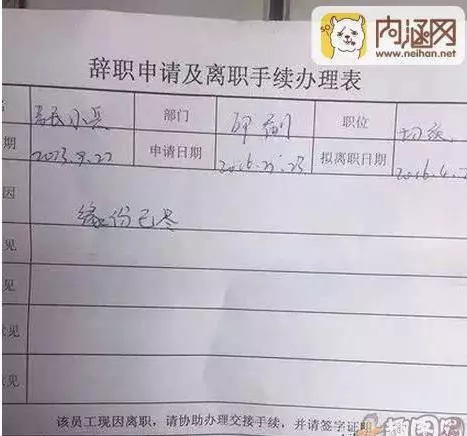 内涵网
www.neihan.net
辞职申请及离职手续办理表
部门 印刷 职位
期 2013.9.22 申请日期 拟离职日期
因
缘份已尽
见
见
见
见
该员工现因离职，请协助办理交接手续，并请签字证明
趣图网